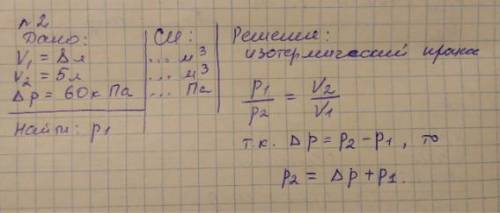 №2
Дано:
V₁ = 8л
V₂ = 5л
Δp = 60к Па
Найти: p₁
СИ:
... м³
... м³
... Па
Решение:
изотермический
p₁/p₂ = V₂/V₁
т.к. Δp = p₂ - p₁, то
p₂ = Δp + p₁.